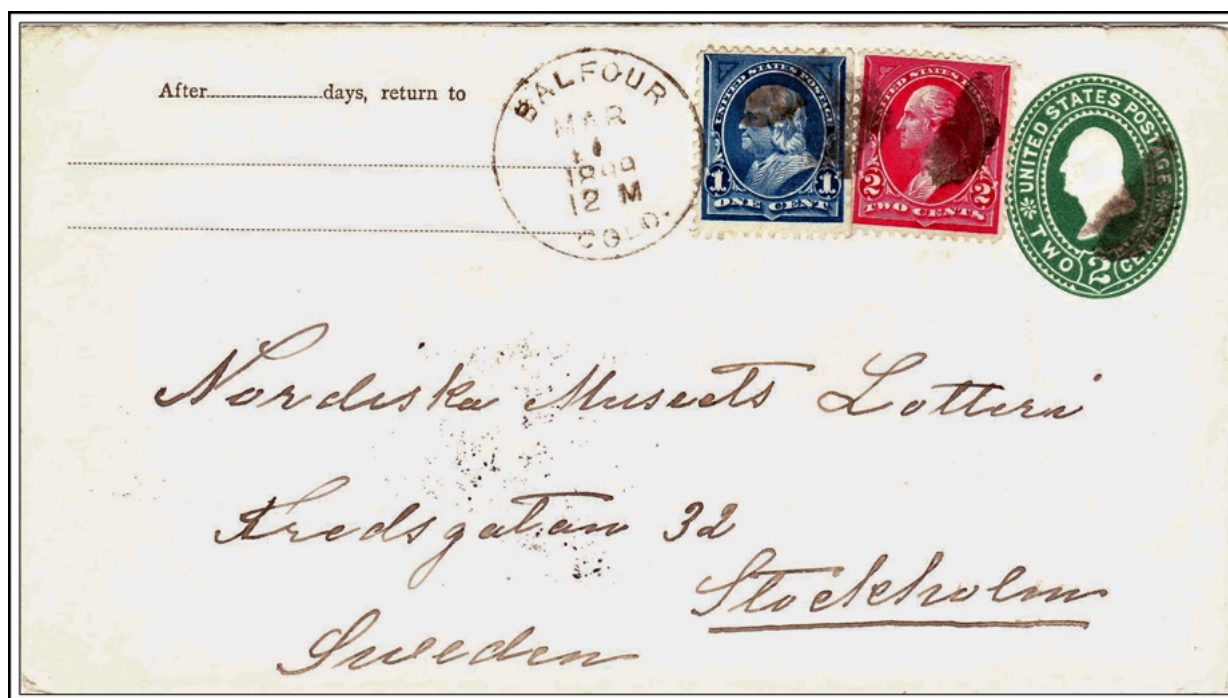 After............days, return to
BALFOUR
MAR
12 M
COLO.
UNITED STATES POSTAGE
1 1
ONE CENT
UNITED STATES POSTAGE
2 2
TWO CENTS
UNITED STATES POSTAGE
TWO 2 CENTS
Nordiska Museets Lotteri
Fredsgatan 32
Stockholm
Sweden